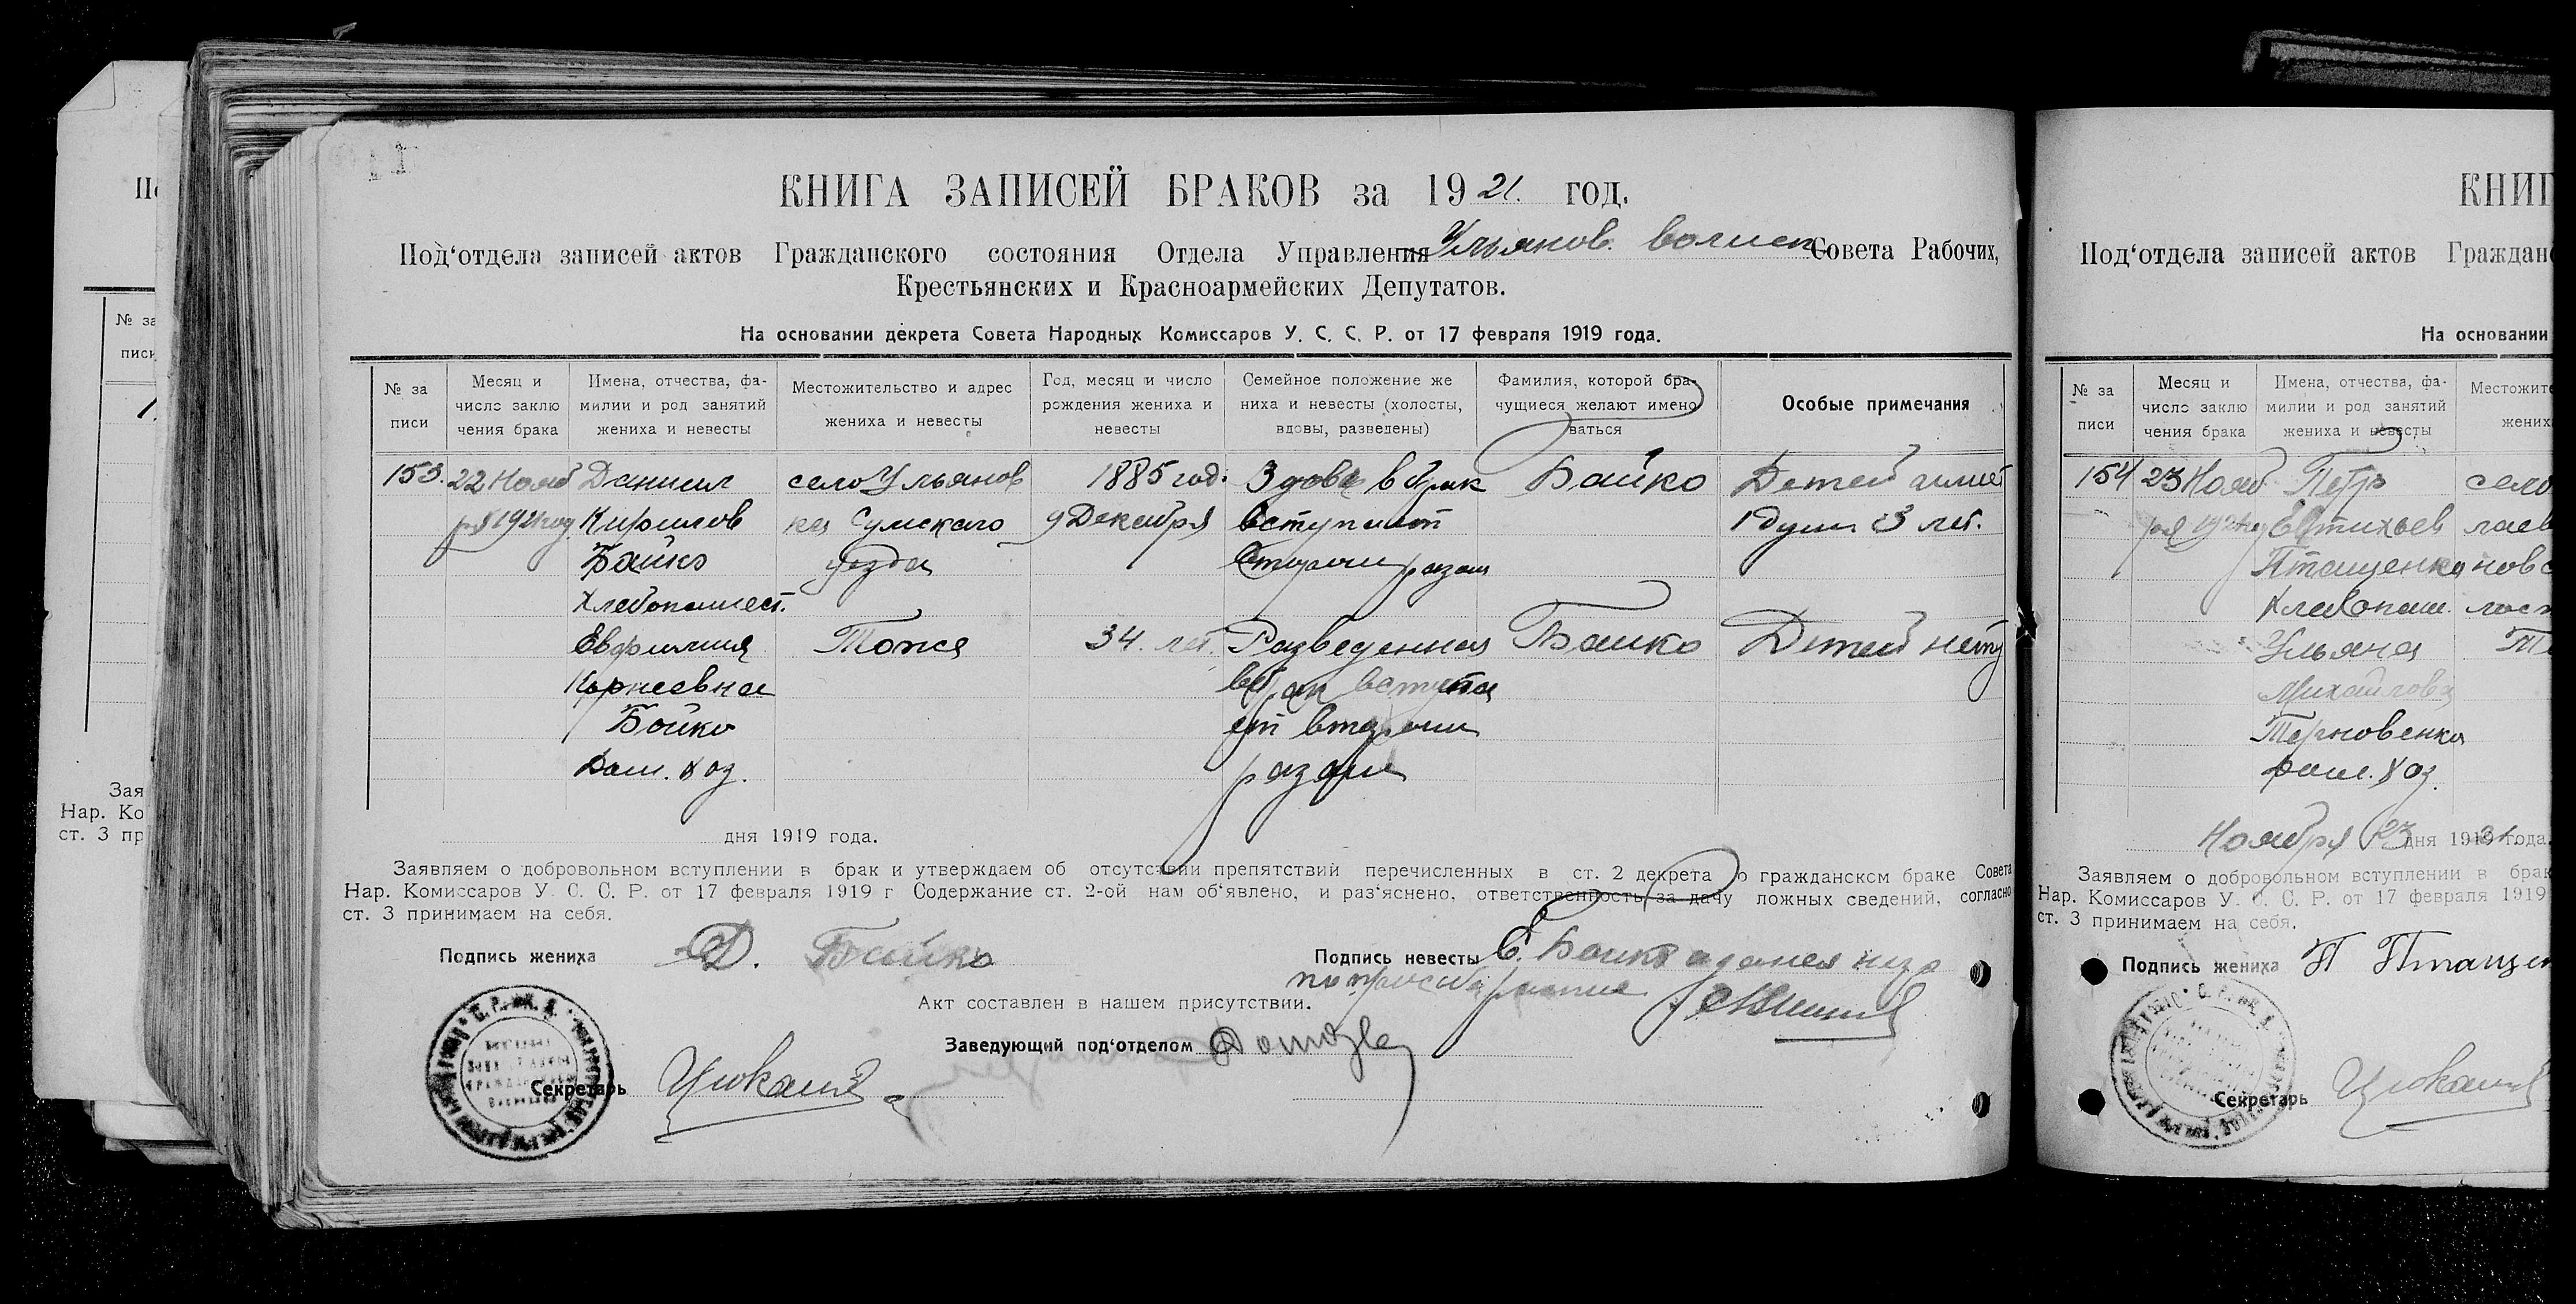 КНИГА ЗАПИСЕЙ БРАКОВ за 1921. год.
Под‘отдела записей актов Гражданского состояния Отдела Управления Ульянов. волисп. Совета Рабочих,
Крестьянских и Красноармейских Депутатов.
На основании декрета Совета Народных Комиссаров У. С. С. Р. от 17 февраля 1919 года.
№ за писи
Месяц и число заклю чения брака
Имена, отчества, фа- милии и род занятий жениха и невесты
Местожительство и адрес жениха и невесты
Год, месяц и число рождения жениха и невесты
Семейное положение же ниха и невесты (холосты, вдовы, разведены)
Фамилия, которой бра- чущиеся желают имено ваться
Особые примечания
153. 22 Нояб Даниил село Ульянов 1885 год. в брак Бойко Детей
ря 1921 год Кирилов ка Сумского 9 Декабря вступает 1 душа 3 лет.
Бойко уезда разом
Хлебопашест.
Евфимия Тоже 34. лет. Разведенная Бойко Детей нету
Корнеевна в брак вступа
Бойко ет вторым
Дом. хоз. разом
дня 1919 года.
Заявляем о добровольном вступлении в брак и утверждаем об отсутствии препятствий перечисленных в ст. 2 декрета о гражданском браке Совета
Нар. Комиссаров У. С. С. Р. от 17 февраля 1919 г Содержание ст. 2-ой нам об‘явлено, и раз‘яснено, ответственность за дачу ложных сведений, согласно
ст. 3 принимаем на себя.
Подпись жениха Д. Бойко
Подпись невесты Е. Бойко а за нея
Акт составлен в нашем присутствии.
Заведующий под‘отделом
Секретарь
КНИГ
Под‘отдела записей актов Граждан
На основании
№ за писи
Месяц и число заклю чения брака
Имена, отчества, фа- милии и род занятий жениха и невесты
Местожите жених
154 23 Нояб Петр село
ря Евтихьев лаев
Птащенко новс
Хлебопаш.
Ульяна
Михайлова
Терновенко
дом. хоз.
Ноября 23 дня 1921 года.
Заявляем о добровольном вступлении в брак
Нар. Комиссаров У. С. С. Р. от 17 февраля 1919
ст. 3 принимаем на себя.
Подпись жениха П Птащен
Секретарь
№ за
писи
Зая
Нар. Ко
ст. 3 пр